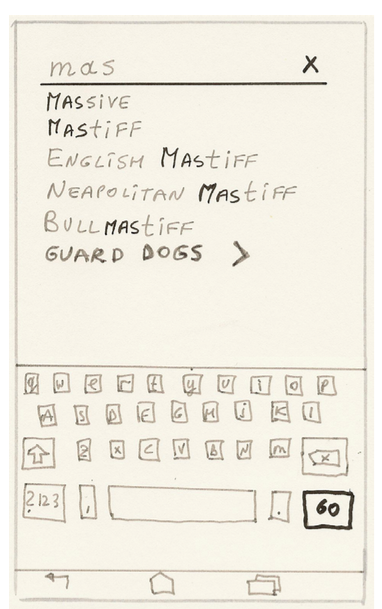 mas X
MASSiVE
MAStiFF
ENGLiSH MAStiFF
NEAPOLiTAN MAStiFF
BULLMAStiFF
GUARD DOGS >
q w e r t y u i o p
A S D F G H j K l
z x C V B N m x
?123 , . GO